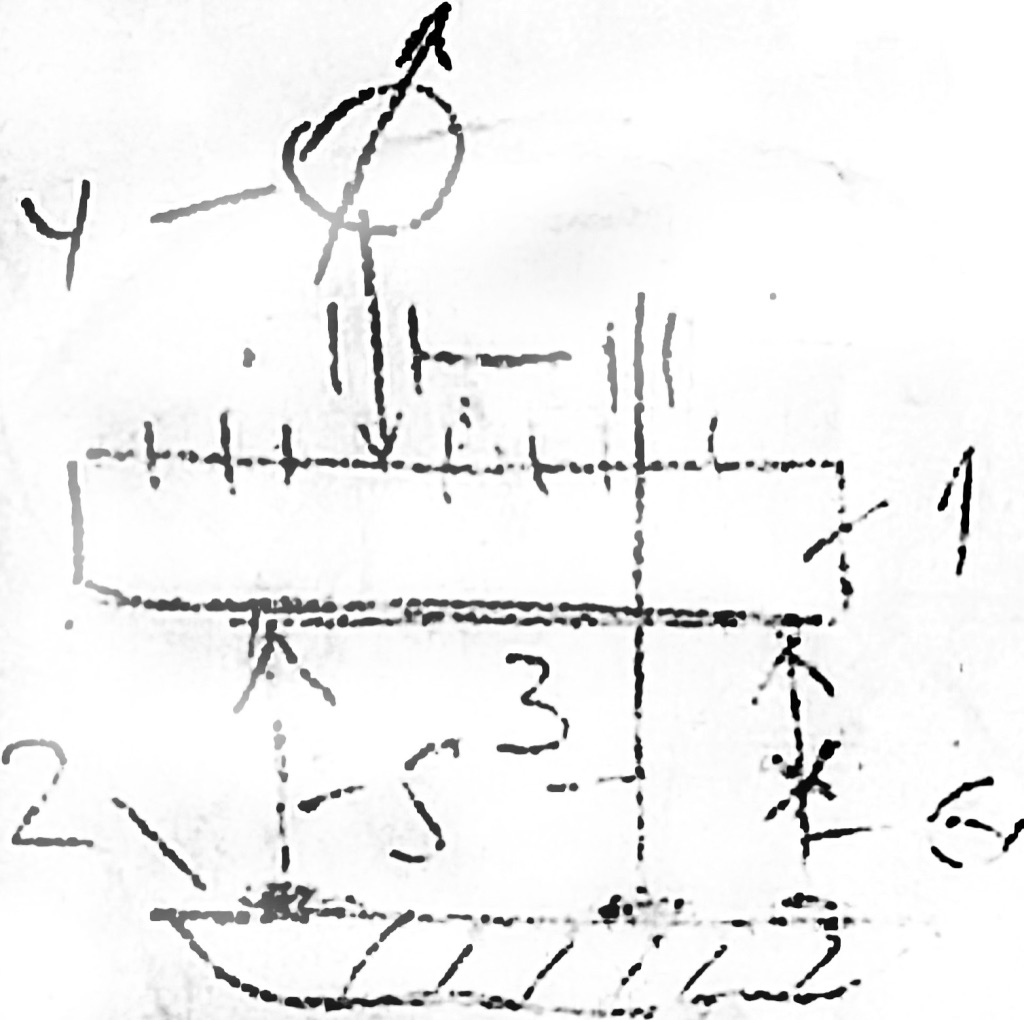 4
1
3
2
5
6